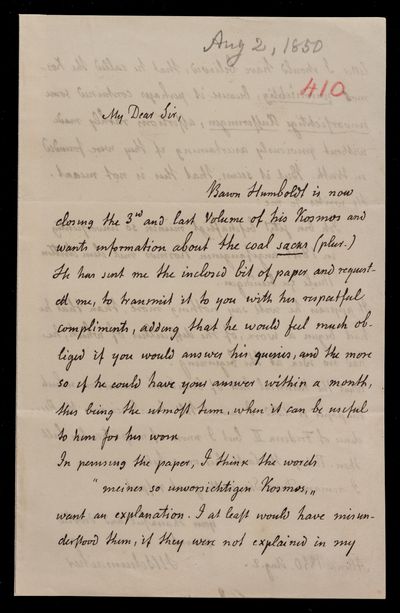 Aug 2, 1850
410
My Dear Sir,
Baron Humboldt is now
closing the 3rd and last Volume of his Kosmos and
wants information about the coal sacks (plur.)
He has sent me the inclosed bit of paper and request-
ed me, to transmit it to you with his respectful
compliments, adding that he would feel much ob-
liged if you would answer his queries, and the more
so if he could have your answer within a month,
this being the utmost term, when it can be useful
to him for his work
In perusing the paper, I think the words
"meines so unvorsichtigen Kosmos,"
want an explanation. I at least would have misun-
derstood them, if they were not explained in my